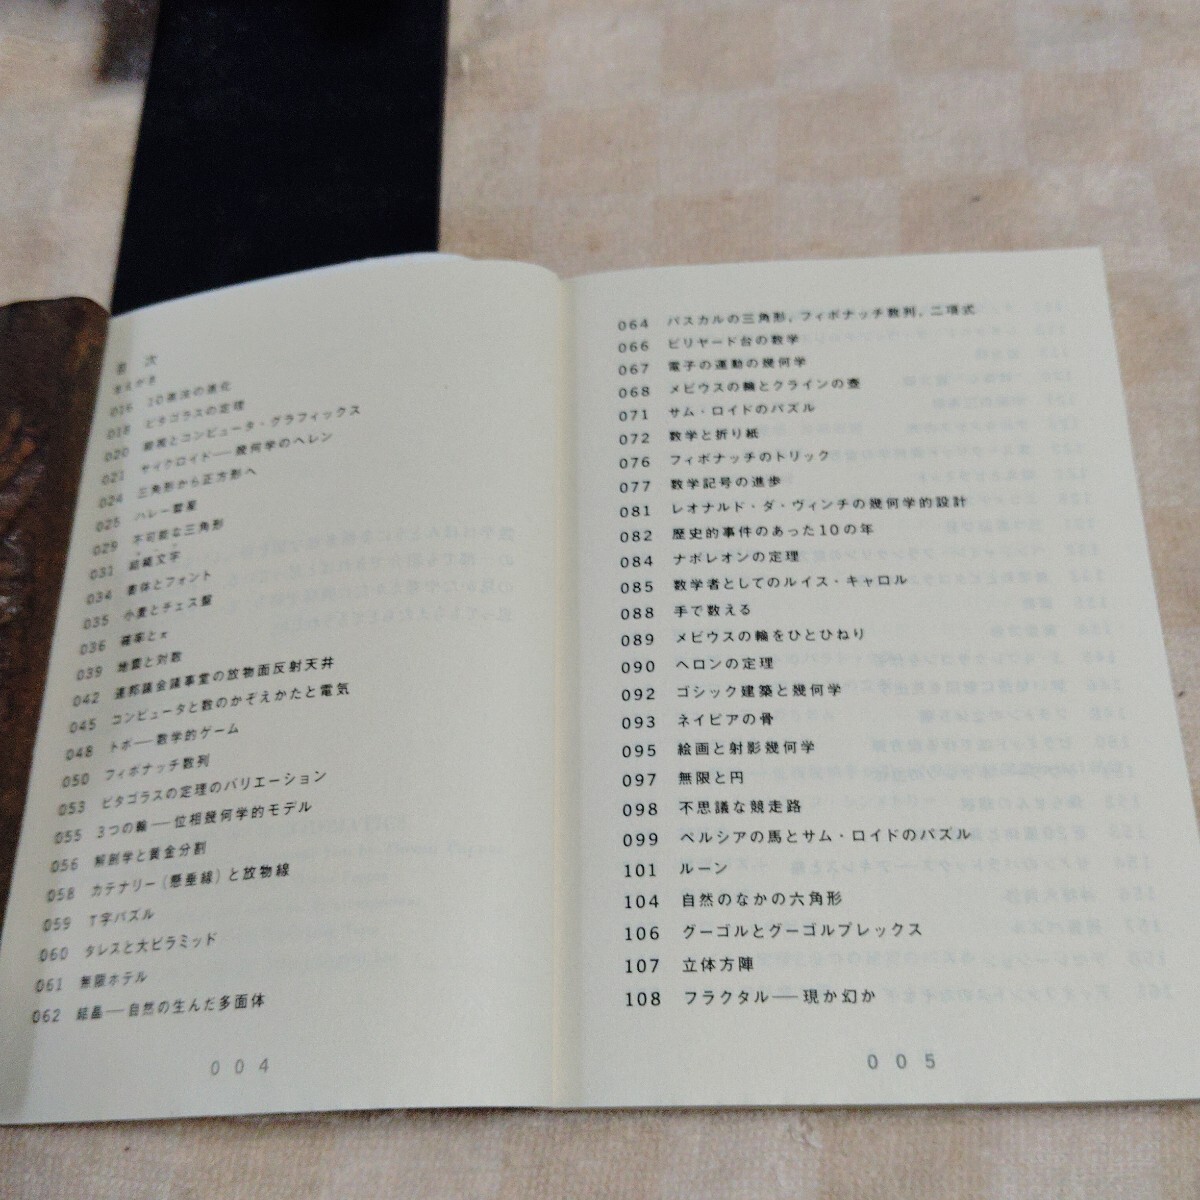 目 次
まえがき
016 10進法の進化
018 ピタゴラスの定理
020 錯視とコンピュータ・グラフィックス
021 サイクロイド──幾何学のヘレン
024 三角形から正方形へ
025 ハレー彗星
029 不可能な三角形
031 結縄文字
034 書体とフォント
035 小麦とチェス盤
036 確率とπ
039 地震と対数
042 連邦議会議事堂の放物面反射天井
045 コンピュータと数のかぞえかたと電気
048 トポ──数学的ゲーム
050 フィボナッチ数列
053 ピタゴラスの定理のバリエーション
055 3つの輪──位相幾何学的モデル
056 解剖学と黄金分割
058 カテナリー(懸垂線)と放物線
059 T字パズル
060 タレスと大ピラミッド
061 無限ホテル
062 結晶──自然の生んだ多面体
004
064 パスカルの三角形,フィボナッチ数列,二項式
066 ビリヤード台の数学
067 電子の運動の幾何学
068 メビウスの輪とクラインの壺
071 サム・ロイドのパズル
072 数学と折り紙
076 フィボナッチのトリック
077 数学記号の進歩
081 レオナルド・ダ・ヴィンチの幾何学的設計
082 歴史的事件のあった10の年
084 ナポレオンの定理
085 数学者としてのルイス・キャロル
088 手で数える
089 メビウスの輪をひとひねり
090 ヘロンの定理
092 ゴシック建築と幾何学
093 ネイピアの骨
095 絵画と射影幾何学
097 無限と円
098 不思議な競走路
099 ペルシアの馬とサム・ロイドのパズル
101 ルーン
104 自然のなかの六角形
106 グーゴルとグーゴルプレックス
107 立体方陣
108 フラクタル──現か幻か
005